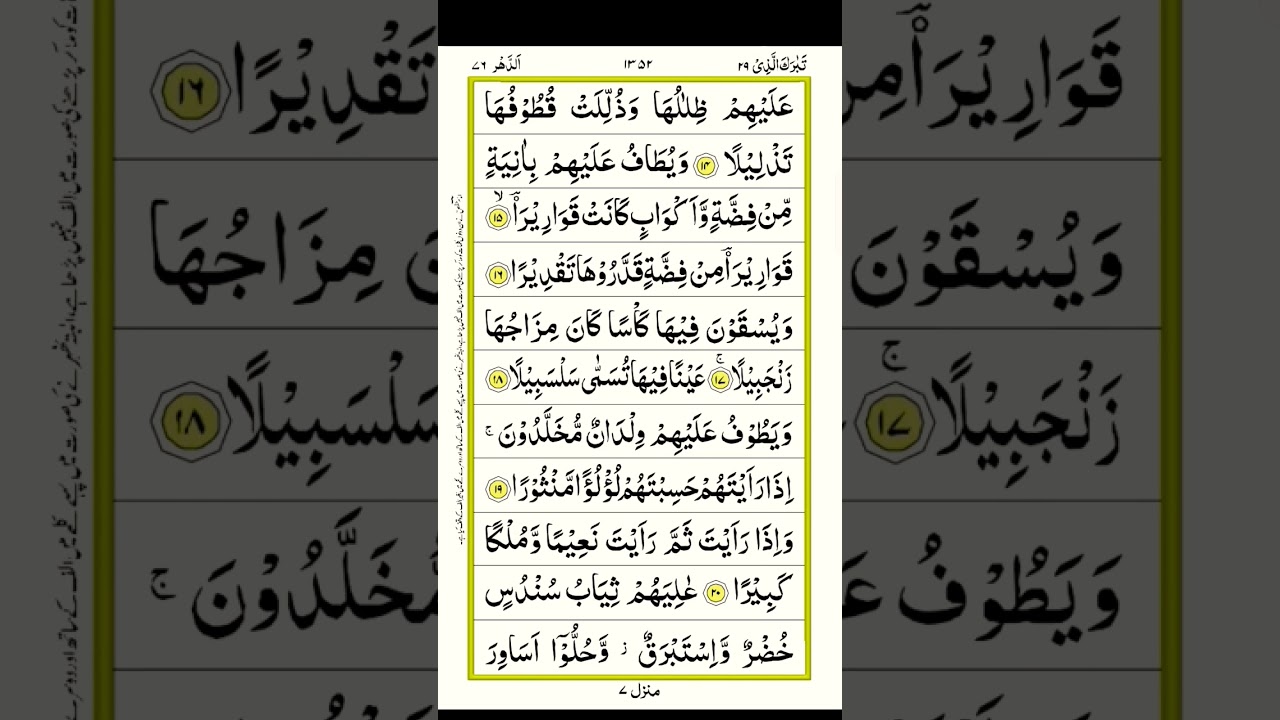 تَبٰرَكَ الَّذِیْ ۲۹ ۱۳۵۲ اَلدَّهْر ۷۶
عَلَیْهِمْ ظِلٰلُهَا وَذُلِّلَتْ قُطُوْفُهَا
تَذْلِیْلًا ۱۴ وَیُطَافُ عَلَیْهِمْ بِاٰنِیَةٍ
مِّنْ فِضَّةٍ وَّاَكْوَابٍ كَانَتْ قَوَارِیْرَا۠ ۱۵
قَوَارِیْرَا۠ مِنْ فِضَّةٍ قَدَّرُوْهَا تَقْدِیْرًا ۱۶
وَیُسْقَوْنَ فِیْهَا كَاْسًا كَانَ مِزَاجُهَا
زَنْجَبِیْلًا ۚ ۱۷ عَیْنًا فِیْهَا تُسَمّٰى سَلْسَبِیْلًا ۱۸
وَیَطُوْفُ عَلَیْهِمْ وِلْدَانٌ مُّخَلَّدُوْنَ ۚ
اِذَا رَاَیْتَهُمْ حَسِبْتَهُمْ لُؤْلُؤًا مَّنْثُوْرًا ۱۹
وَاِذَا رَاَیْتَ ثَمَّ رَاَیْتَ نَعِیْمًا وَّمُلْكًا
كَبِیْرًا ۲۰ عٰلِیَهُمْ ثِیَابُ سُنْدُسٍ
خُضْرٌ وَّاِسْتَبْرَقٌ ؗ وَّحُلُّوْۤا اَسَاوِرَ
منزل ۷